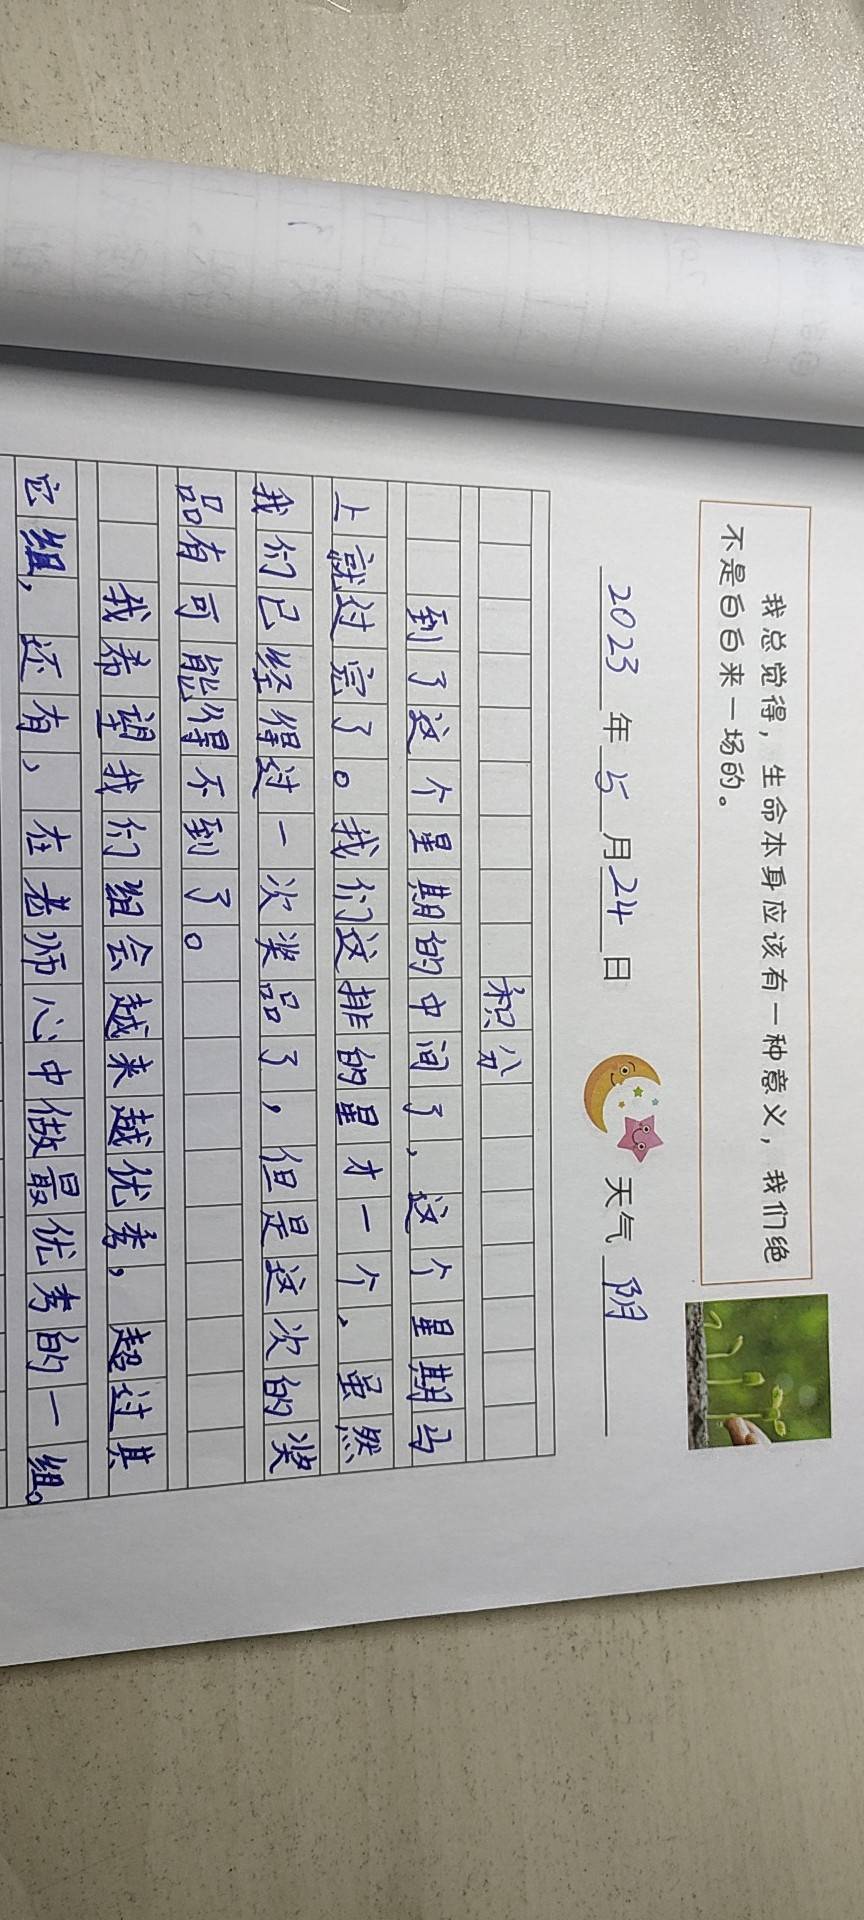 我总觉得，生命本身应该有一种意义，我们绝
不是白白来一场的。
2023年5月24日 天气 阴
积分
到了这个星期的中间了，这个星期马
上就过完了。我们这排的星才一个，虽然
我们已经得过一次奖品了，但是这次的奖
品有可能得不到了。
我希望我们组会越来越优秀，超过其
它组，还有，在老师心中做最优秀的一组。